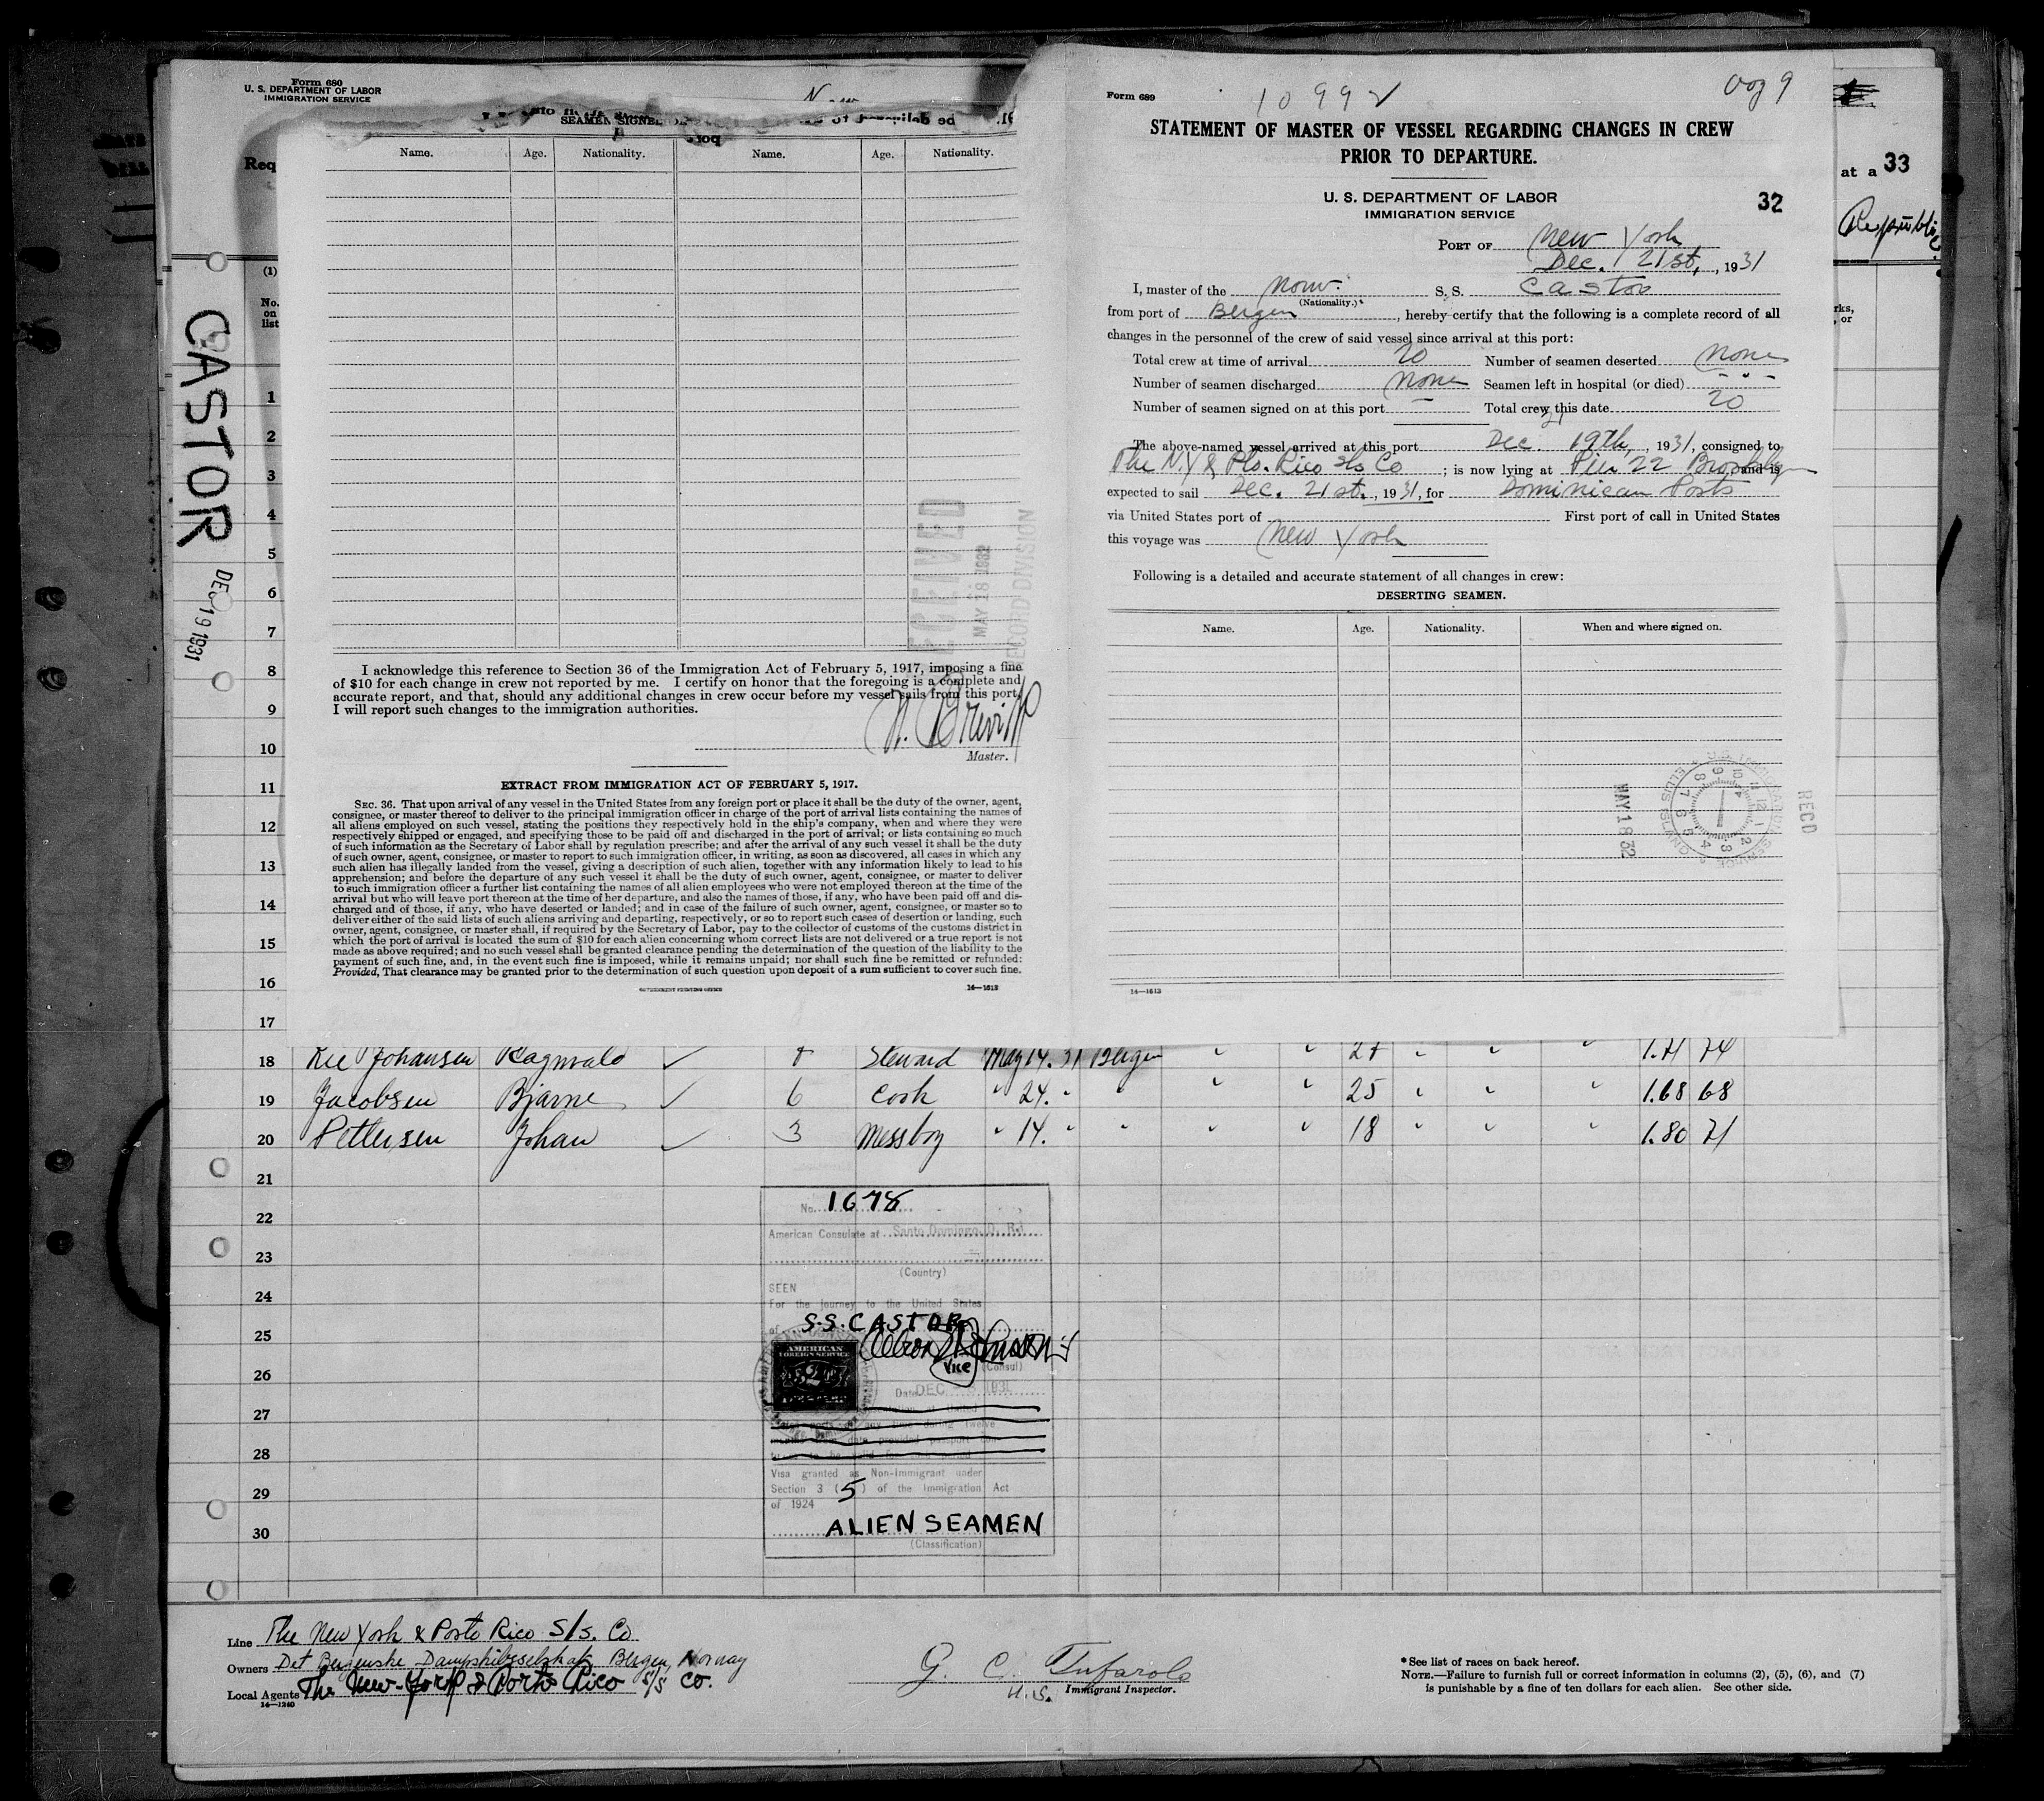 Form 680
U. S. DEPARTMENT OF LABOR
IMMIGRATION SERVICE
Req
(1)
No.
on
list
CASTOR
DEC 19 1931
SEAMEN SIGNED
be delivered to
Name. Age. Nationality. Name. Age. Nationality.
RECEIVED
MAY 18 1932
RECORD DIVISION
I acknowledge this reference to Section 36 of the Immigration Act of February 5, 1917, imposing a fine
of $10 for each change in crew not reported by me. I certify on honor that the foregoing is a complete and
accurate report, and that, should any additional changes in crew occur before my vessel sails from this port,
I will report such changes to the immigration authorities.
Master.
EXTRACT FROM IMMIGRATION ACT OF FEBRUARY 5, 1917.
SEC. 36. That upon arrival of any vessel in the United States from any foreign port or place it shall be the duty of the owner, agent,
consignee, or master thereof to deliver to the principal immigration officer in charge of the port of arrival lists containing the names of
all aliens employed on such vessel, stating the positions they respectively hold in the ship's company, when and where they were
respectively shipped or engaged, and specifying those to be paid off and discharged in the port of arrival; or lists containing so much
of such information as the Secretary of Labor shall by regulation prescribe; and after the arrival of any such vessel it shall be the duty
of such owner, agent, consignee, or master to report to such immigration officer, in writing, as soon as discovered, all cases in which any
such alien has illegally landed from the vessel, giving a description of such alien, together with any information likely to lead to his
apprehension; and before the departure of any such vessel it shall be the duty of such owner, agent, consignee, or master to deliver
to such immigration officer a further list containing the names of all alien employees who were not employed thereon at the time of the
arrival but who will leave port thereon at the time of her departure, and also the names of those, if any, who have been paid off and dis-
charged and of those, if any, who have deserted or landed; and in case of the failure of such owner, agent, consignee, or master so to
deliver either of the said lists of such aliens arriving and departing, respectively, or so to report such cases of desertion or landing, such
owner, agent, consignee, or master shall, if required by the Secretary of Labor, pay to the collector of customs of the customs district in
which the port of arrival is located the sum of $10 for each alien concerning whom correct lists are not delivered or a true report is not
made as above required; and no such vessel shall be granted clearance pending the determination of the question of the liability to the
payment of such fine, and, in the event such fine is imposed, while it remains unpaid; nor shall such fine be remitted or refunded:
Provided, That clearance may be granted prior to the determination of such question upon deposit of a sum sufficient to cover such fine.
GOVERNMENT PRINTING OFFICE 14—1613
Form 689 1099
STATEMENT OF MASTER OF VESSEL REGARDING CHANGES IN CREW
PRIOR TO DEPARTURE.
U. S. DEPARTMENT OF LABOR
IMMIGRATION SERVICE
32
PORT OF New York
Dec. 21st, , 1931
I, master of the Norw. S. S. Castor
(Nationality.)
from port of Bergen , hereby certify that the following is a complete record of all
changes in the personnel of the crew of said vessel since arrival at this port:
Total crew at time of arrival 20 Number of seamen deserted None
Number of seamen discharged None Seamen left in hospital (or died) - " -
Number of seamen signed on at this port — Total crew this date 20
21
The above-named vessel arrived at this port Dec. 19th, , 1931, consigned to
The N.Y. & Pto. Rico S/s Co ; is now lying at Pier 22 Brooklyn and is
expected to sail Dec. 21st. , 1931, for Dominican Ports
via United States port of First port of call in United States
this voyage was New York
Following is a detailed and accurate statement of all changes in crew:
DESERTING SEAMEN.
Name. Age. Nationality. When and where signed on.
RECD
MAY 18 32
14—1613
at a 33
Republic
rks,
, or
1
2
3
4
5
6
7
8
9
10
11
12
13
14
15
16
17
18 Johansen Ragnvald ✓ 8 Steward May 14. 31 Bergen " " 27 " " " 1.71 74
19 Jacobsen Bjarne ✓ 6 Cook " 24. " " " " 25 " " " 1.68 68
20 Pettersen Johan ✓ 3 Messboy " 14. " " " " 18 " " " 1.80 71
21
22
23
24
25
26
27
28
29
30
No. 1678
American Consulate at Santo Domingo, D. R.
(Country)
SEEN
For the journey to the United States
of S.S. CASTOR
Vice (Consul)
AMERICAN
FOREIGN SERVICE
Date DEC
Visa granted as Non-Immigrant under
Section 3 (5) of the Immigration Act
of 1924
ALIEN SEAMEN
(Classification)
Line The New York & Porto Rico S/s. Co
Owners Det Bergenske Dampskibsselskab, Bergen, Norway
Local Agents The New-York & Porto Rico S/S Co.
14—1240
G. C. Tufarolo
U.S. Immigrant Inspector.
* See list of races on back hereof.
NOTE.—Failure to furnish full or correct information in columns (2), (5), (6), and (7)
is punishable by a fine of ten dollars for each alien. See other side.